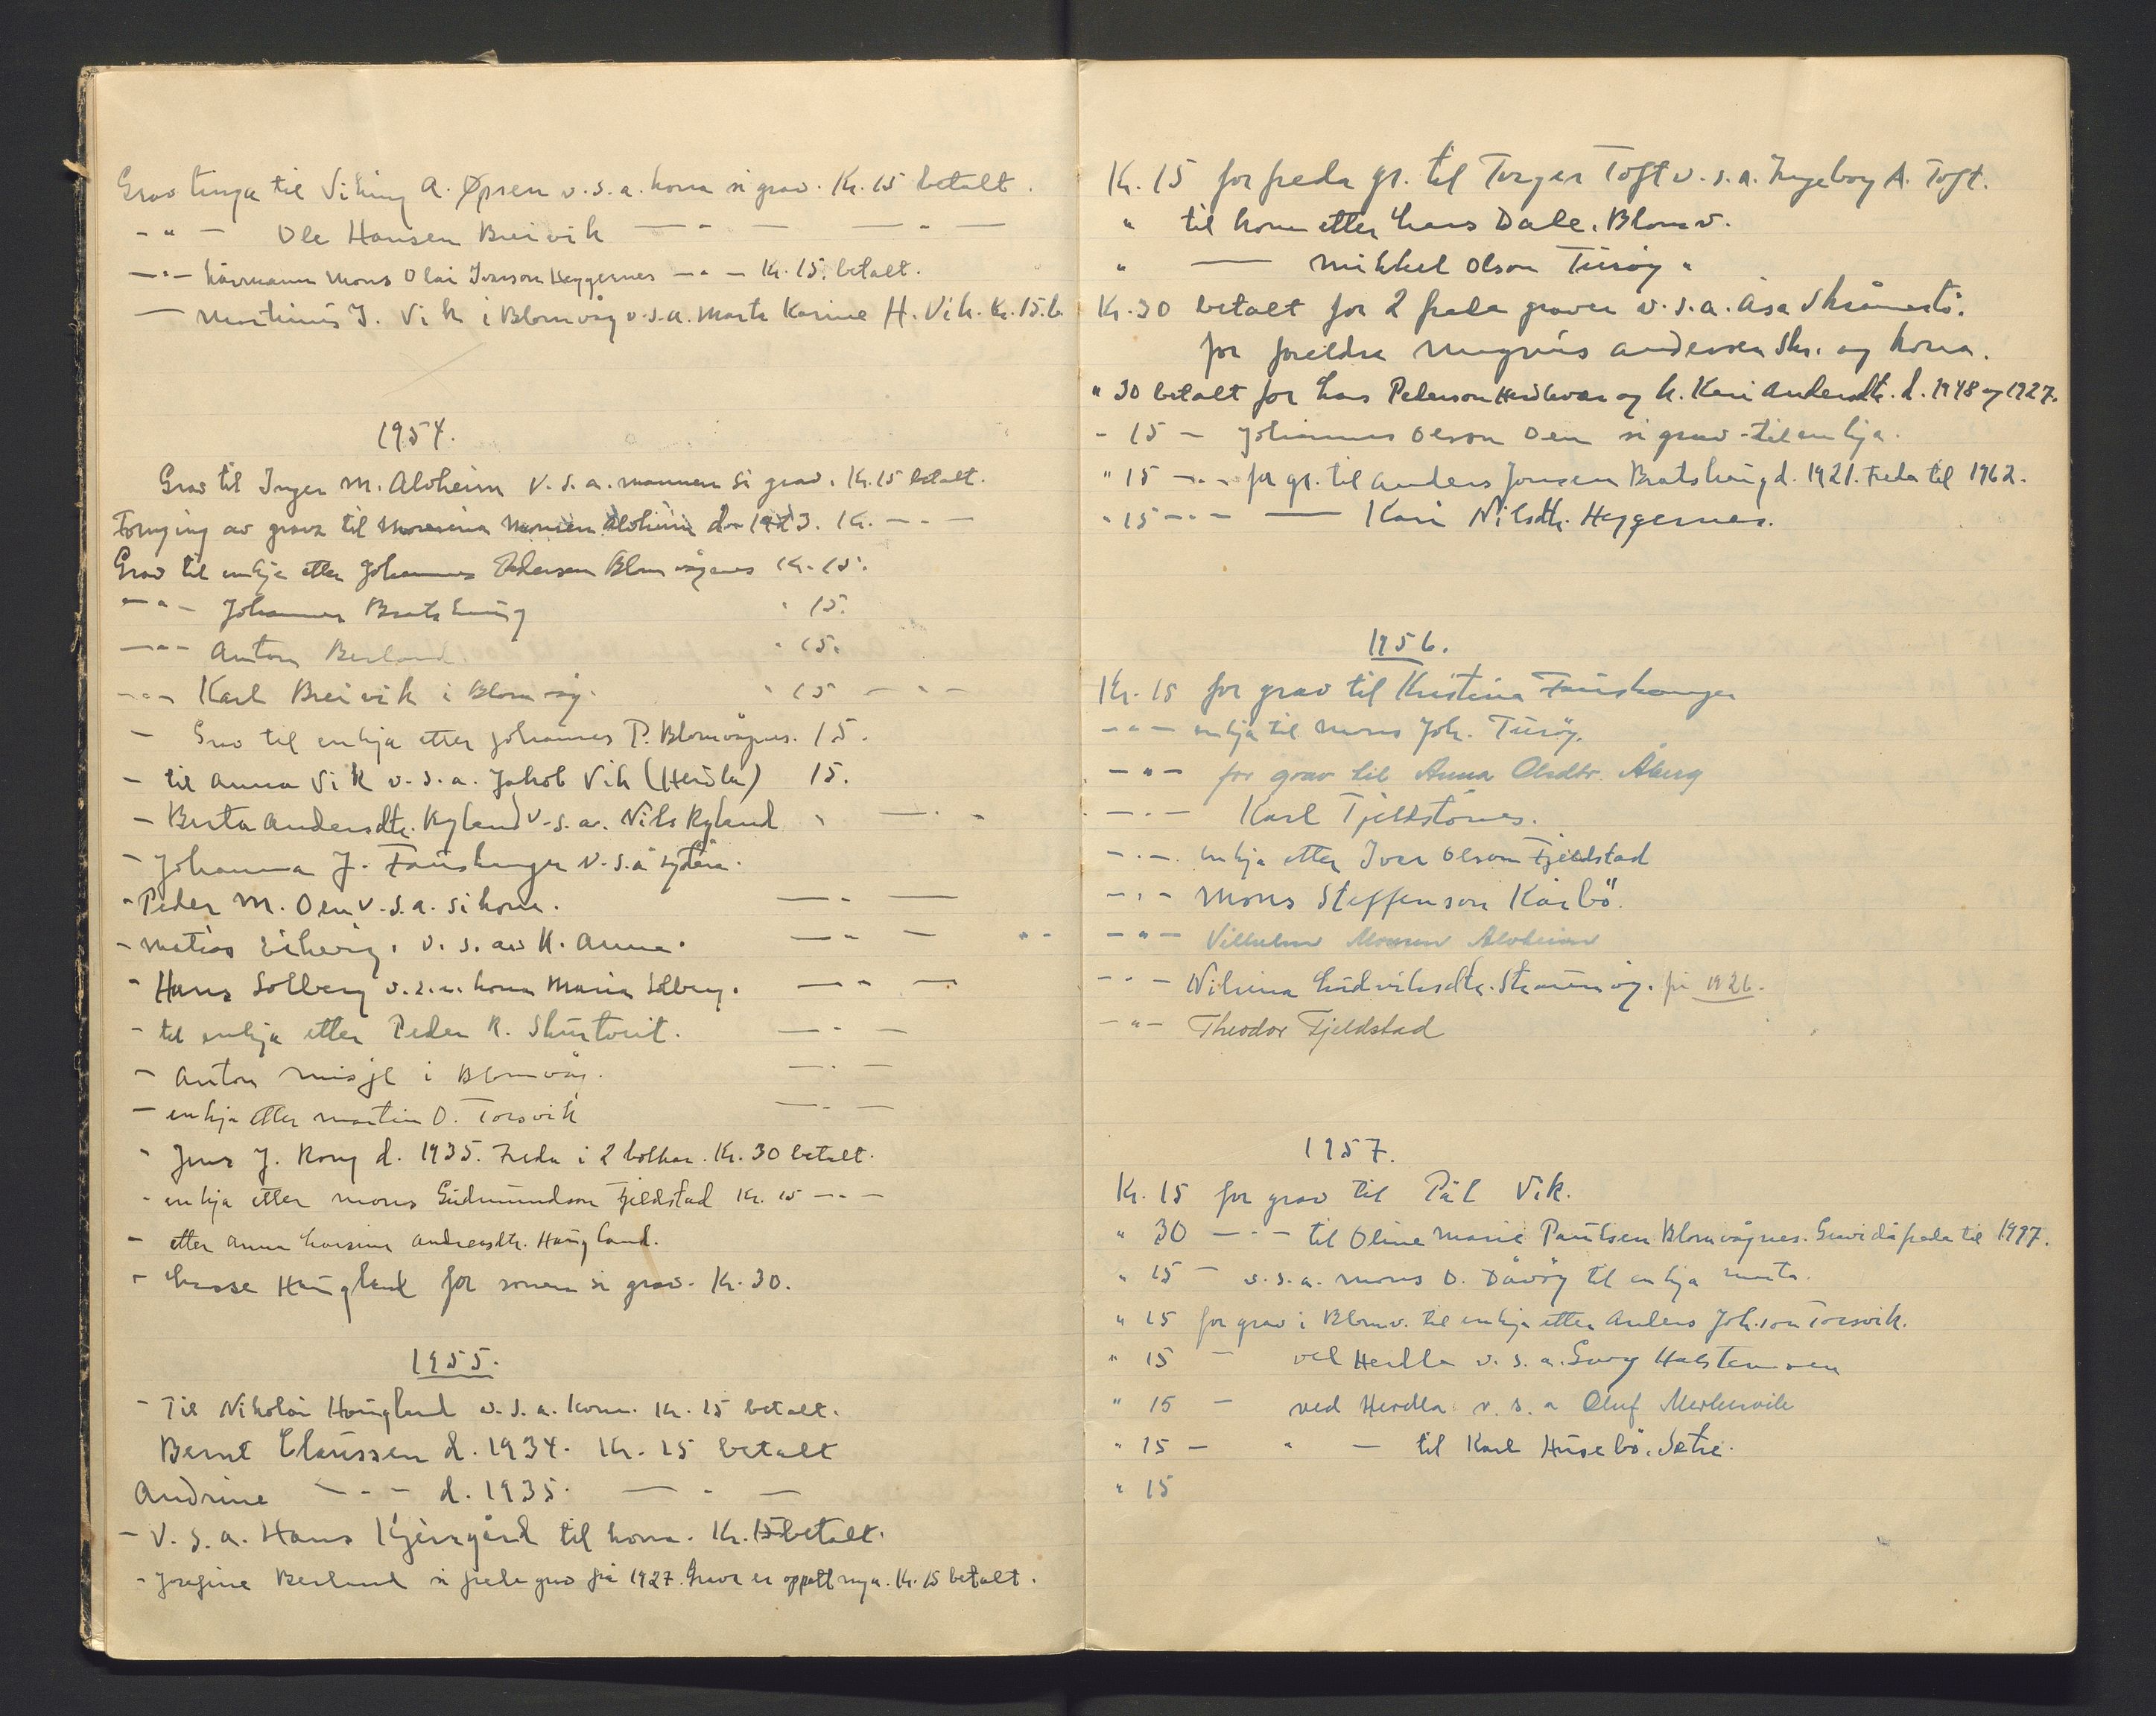 Grav tinga til Viking A. Øpsen v.s.a. kona si grav. Kr. 15 betalt.
- " - Ole Hansen Breivik — " — — " —
— " — Mons Olai Iverson Heggernes — " — Kr. 15. betalt.
— Martinus J. Vik i Blomvåg v.s.a. Marta Karine H. Vik. Kr. 15. b
1954.
Grav til Inger M. Alvheim v.s.a. mannen si grav. Kr. 15 betalt.
Fornying av grava til Monsen Alvheim d. 1923. Kr. — " —
Grav til enkja etter Johannes Pedersen Blomvågnes Kr. 15.
— " — Johannes Bratshaug " 15.
— " — Anton Berland " 15.
— " — Karl Breivik i Blomvåg. " 15 — " —
— Grav til enkja etter Johannes P. Blomvågnes. 15.
— til Anna Vik v.s.a. Jakob Vik (Herdla) 15.
— Berta Andersdtr. Ryland v.s.a. Nils Ryland " — " —
— Johanna J. Fauskanger v.s.a.
- Peder M. Oen v.s.a. si kona. — " —
- Matias v.s.av K. Anna. — " —
- Hans Solberg v.s.a. kona Maria Solberg. — " —
- til enkja etter Peder R. Skurtveit. — " —
— Anton Misje i Blomvåg. — " —
— enkja etter Martin O. Torsvik — " —
- Jens J. Rong d. 1935. Freda i 2 bolkar. Kr. 30 betalt.
- enkja etter Mons Gudmundson Fjeldstad Kr. 15 — " —
- etter Anna Andreasdtr. Haugland.
- Lasse Haugland for sonen si grav. Kr. 30.
1955.
- Til Nikolai Haugland v.s.a. kona. Kr. 15 betalt.
Bernt Claussen d. 1934. Kr. 15 betalt
Andrine — " — d. 1935. — " —
— v.s.a. Hans Kjergård til kona. Kr. 15 betalt.
- Josefine Berland si freda grav frå 1927. Grava er oppatt nya. Kr. 15 betalt.
Kr. 15 for freda gr. til Torger Toft v.s.a. Ingeborg A. Toft.
" til kona etter Lars Dale. Blomv.
" — Mikkel Olson Turøy "
Kr. 30 betalt for 2 freda graver v.s.a. Åsa Skråmestø.
for foreldra Magnus Andersen Skr. og kona.
" 30 betalt for Lars Pederson Herdlevær og k. Kari Andersdtr. d. 1948 og 1927.
- 15 - Johannes Olson Oen si grav - til enkja.
" 15 — " — for gr. til Anders Jonsen Bratshaug d. 1921. Freda til 1962.
" 15 — " — — Kari Nilsdtr. Heggernes.
1956.
Kr. 15 for grav til Kristina Fauskanger
— " — enkja til Mons Joh. Turøy.
— " — for grav til Anna Olsdtr. Åberg
— " — Karl Tjeldstönes.
— " — enkja etter Iver Olson Fjeldstad
— " — Mons Steffenson Kårbö.
— " — Vilhelm Monsen Alvheim
— " — Nilsina Ludviksdtr. frå 1926.
— " — Theodor Fjeldstad
1957.
Kr. 15 for grav til Pål Vik.
" 30 — " — til Oline Marie Paulsen Blomvågnes. freda til 1997.
" 15 — v.s.a. Mons O. Dåvöy til enkja Marta.
" 15 for grav i Blomv. til enkja etter Anders Joh.son Torsvik.
" 15 — ved Herdla v.s.a. Halstensen
" 15 — ved Herdla v.s.a Oluf
" 15 — " — til Karl Husebö. Sætre.
" 15